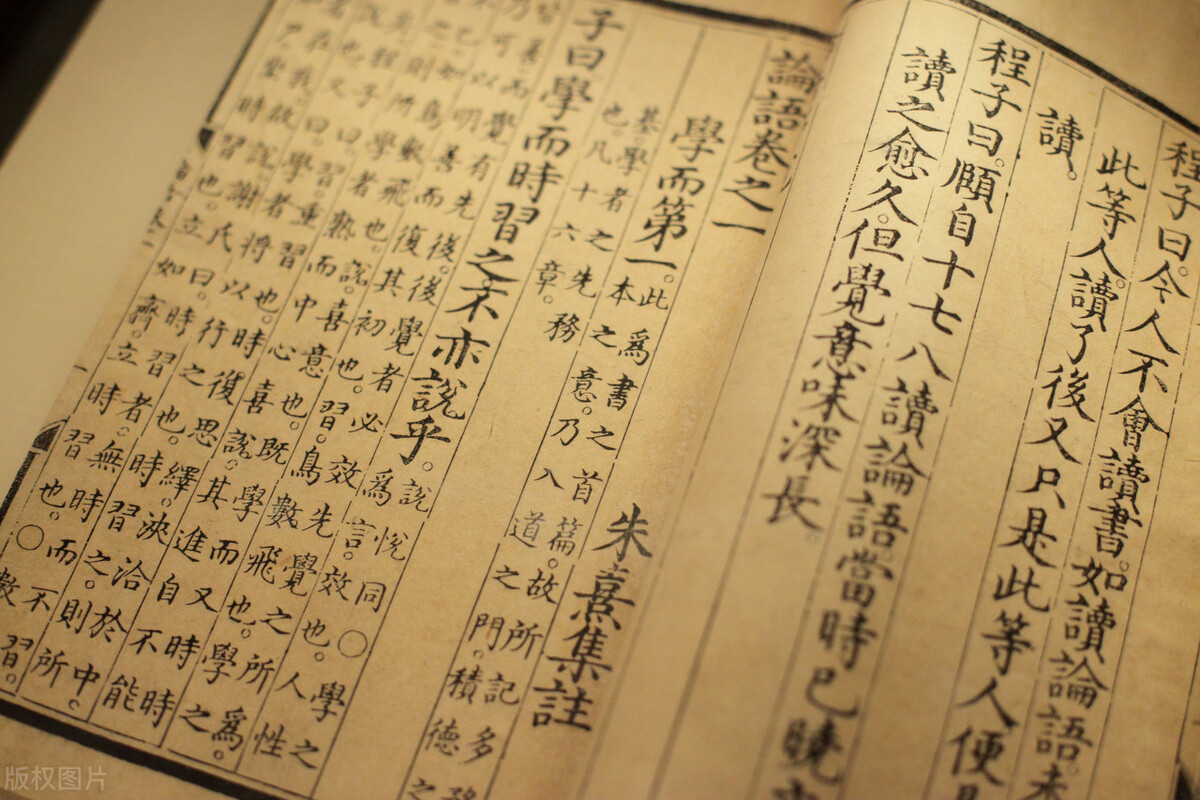 程子曰。今人不會讀書。如讀論語。未
此等人。讀了後又只是此等人。便是
讀。
程子曰。頤自十七八讀論語當時已曉
讀之愈久。但覺意味深長。
論語卷之一
朱熹集註
學而第一。此為書之首篇。故所記多務
本之意。乃入道之門。積德之
基學者之先務
也。凡十六章。
子曰學而時習之不亦說乎。說悅同○學之
為言。效也。人性
皆善而覺有先後。後覺者必效先覺之所為。
乃可以明善而復其初也。習。鳥數飛也。學之
不已。如鳥數飛也。說。喜意也。既學而又時
時習之。則所學者熟。而中心喜說。其進自不能
程子曰。習重習也。時復思繹。浹洽於中。則
說也。又曰。學者將以行之
在我。故說。謝氏曰。時習者。無時而不習。
坐時習也。立如齊。立時習也。○
版权图片